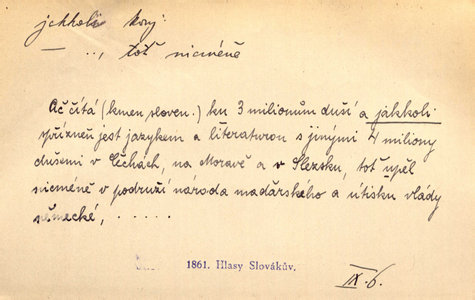 jakkoli konj:
— .., tož nicméně
Ač čítá (kmen sloven.) ku 3 milionům duší a jakkoli
spřízněn jest jazykem a literaturou s jinými 4 miliony
dušemi v Čechách, na Moravě a v Slezsku, tož úpěl
nicméně v podruží národa maďarského a útisku vlády
německé, . . . . . .
1861. Hlasy Slovákův.
IX. 6.